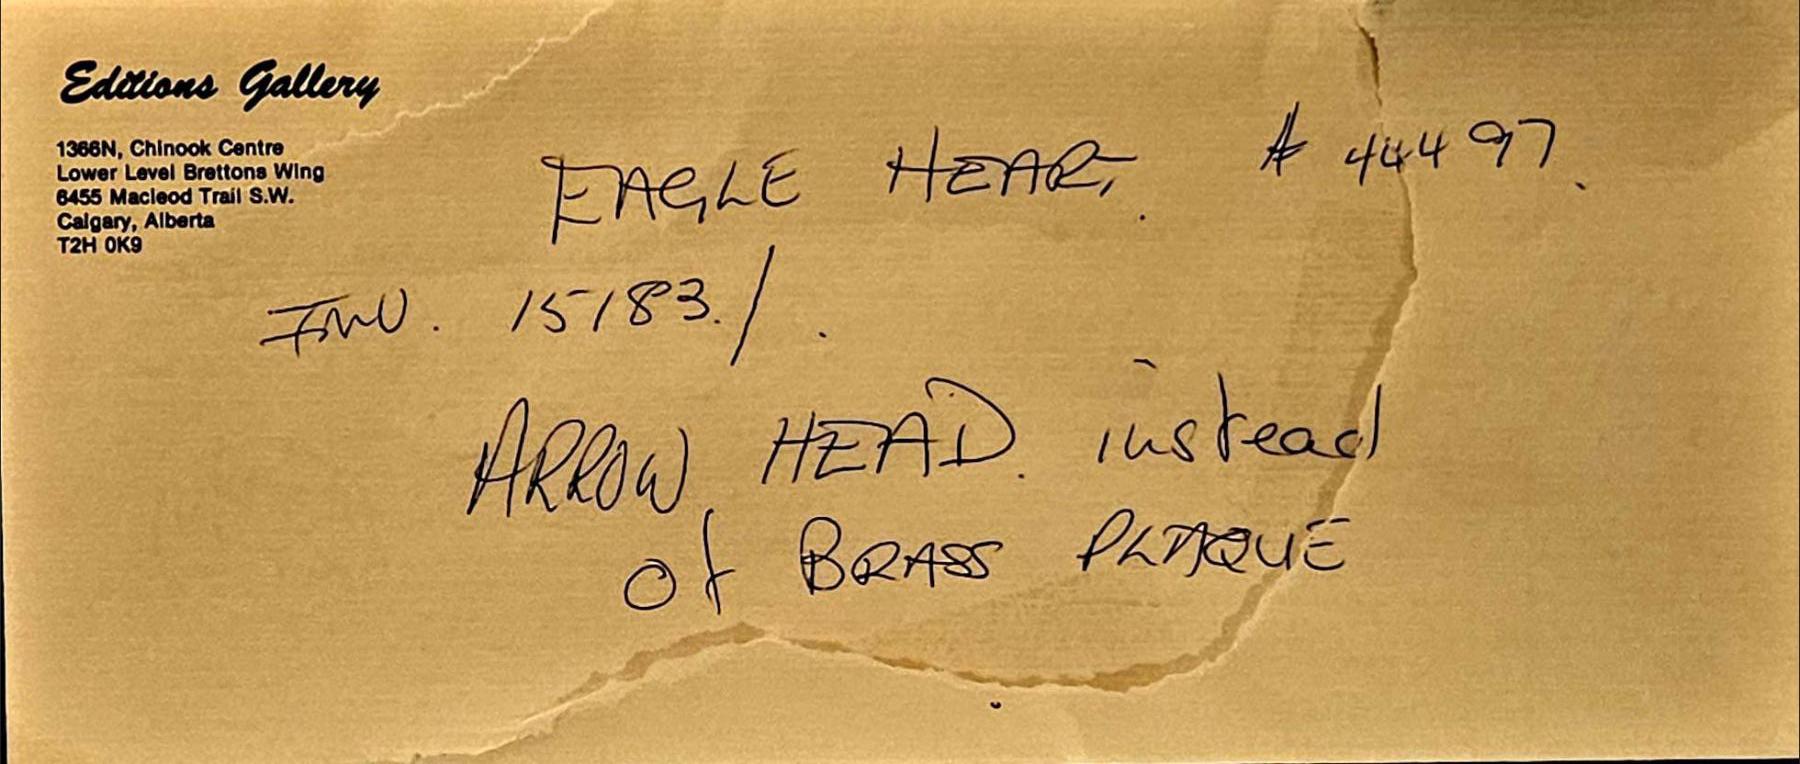 Editions Gallery
1366N, Chinook Centre
Lower Level Brettons Wing
6455 Macleod Trail S.W.
Calgary, Alberta
T2H 0K9
EAGLE HEART. # 44497.
INV. 15183./.
ARROW HEAD. instead
of BRASS PLAQUE